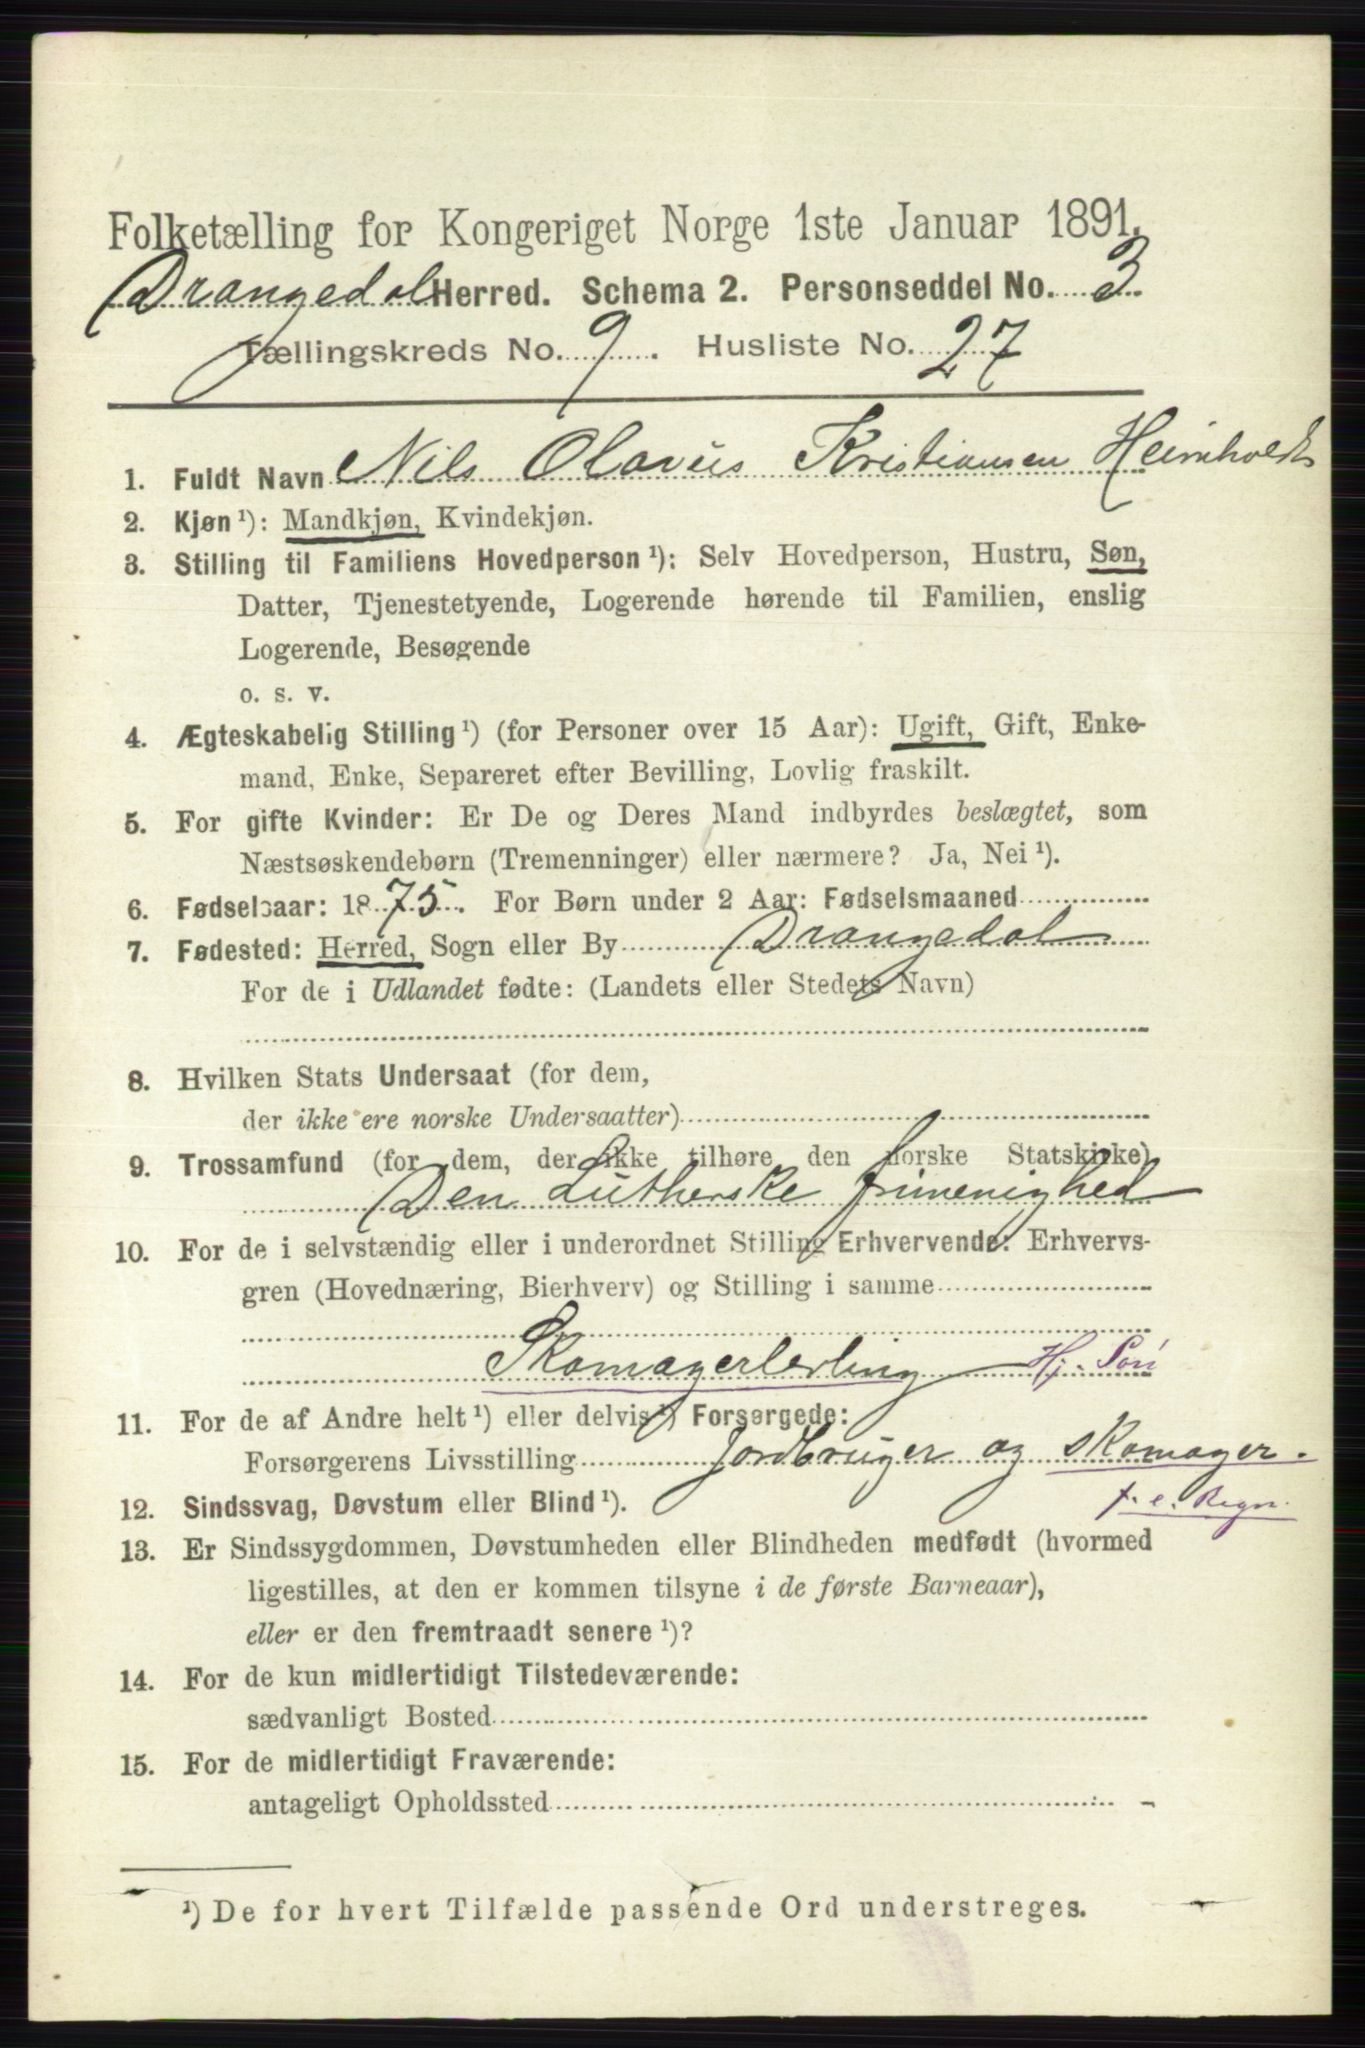 Folketælling for Kongeriget Norge 1ste Januar 1891.
Drangedal Herred. Schema 2. Personseddel No. 3.
Tællingskreds No. 9. Husliste No. 27
1. Fuldt Navn Nils Olavus Kristiansen Heimholdt
2. Kjøn ¹): Mandkjøn, Kvindekjøn.
3. Stilling til Familiens Hovedperson ¹): Selv Hovedperson, Hustru, Søn,
Datter, Tjenestetyende, Logerende hørende til Familien, enslig
Logerende, Besøgende
o. s. v.
4. Ægteskabelig Stilling ¹) (for Personer over 15 Aar): Ugift, Gift, Enke-
mand, Enke, Separeret efter Bevilling, Lovlig fraskilt.
5. For gifte Kvinder: Er De og Deres Mand indbyrdes beslægtet, som
Næstsøskendebørn (Tremenninger) eller nærmere? Ja, Nei ¹).
6. Fødselsaar: 1875. For Børn under 2 Aar: Fødselsmaaned
7. Fødested: Herred, Sogn eller By Drangedal
For de i Udlandet fødte: (Landets eller Stedets Navn)
8. Hvilken Stats Undersaat (for dem,
der ikke ere norske Undersaatter)
9. Trossamfund (for dem, der ikke tilhøre den norske Statskirke)
Den Lutherske frimenighed
10. For de i selvstændig eller i underordnet Stilling Erhvervende: Erhvervs-
gren (Hovednæring, Bierhverv) og Stilling i samme
Skomagerlerling Hj. Søn
11. For de af Andre helt ¹) eller delvis ¹) Forsørgede:
Forsørgerens Livsstilling Jordbruger og skomager.
f. e. Regn.
12. Sindssvag, Døvstum eller Blind ¹).
13. Er Sindssygdommen, Døvstumheden eller Blindheden medfødt (hvormed
ligestilles, at den er kommen tilsyne i de første Barneaar),
eller er den fremtraadt senere ¹)?
14. For de kun midlertidigt Tilstedeværende:
sædvanligt Bosted
15. For de midlertidigt Fraværende:
antageligt Opholdssted
¹) De for hvert Tilfælde passende Ord understreges.